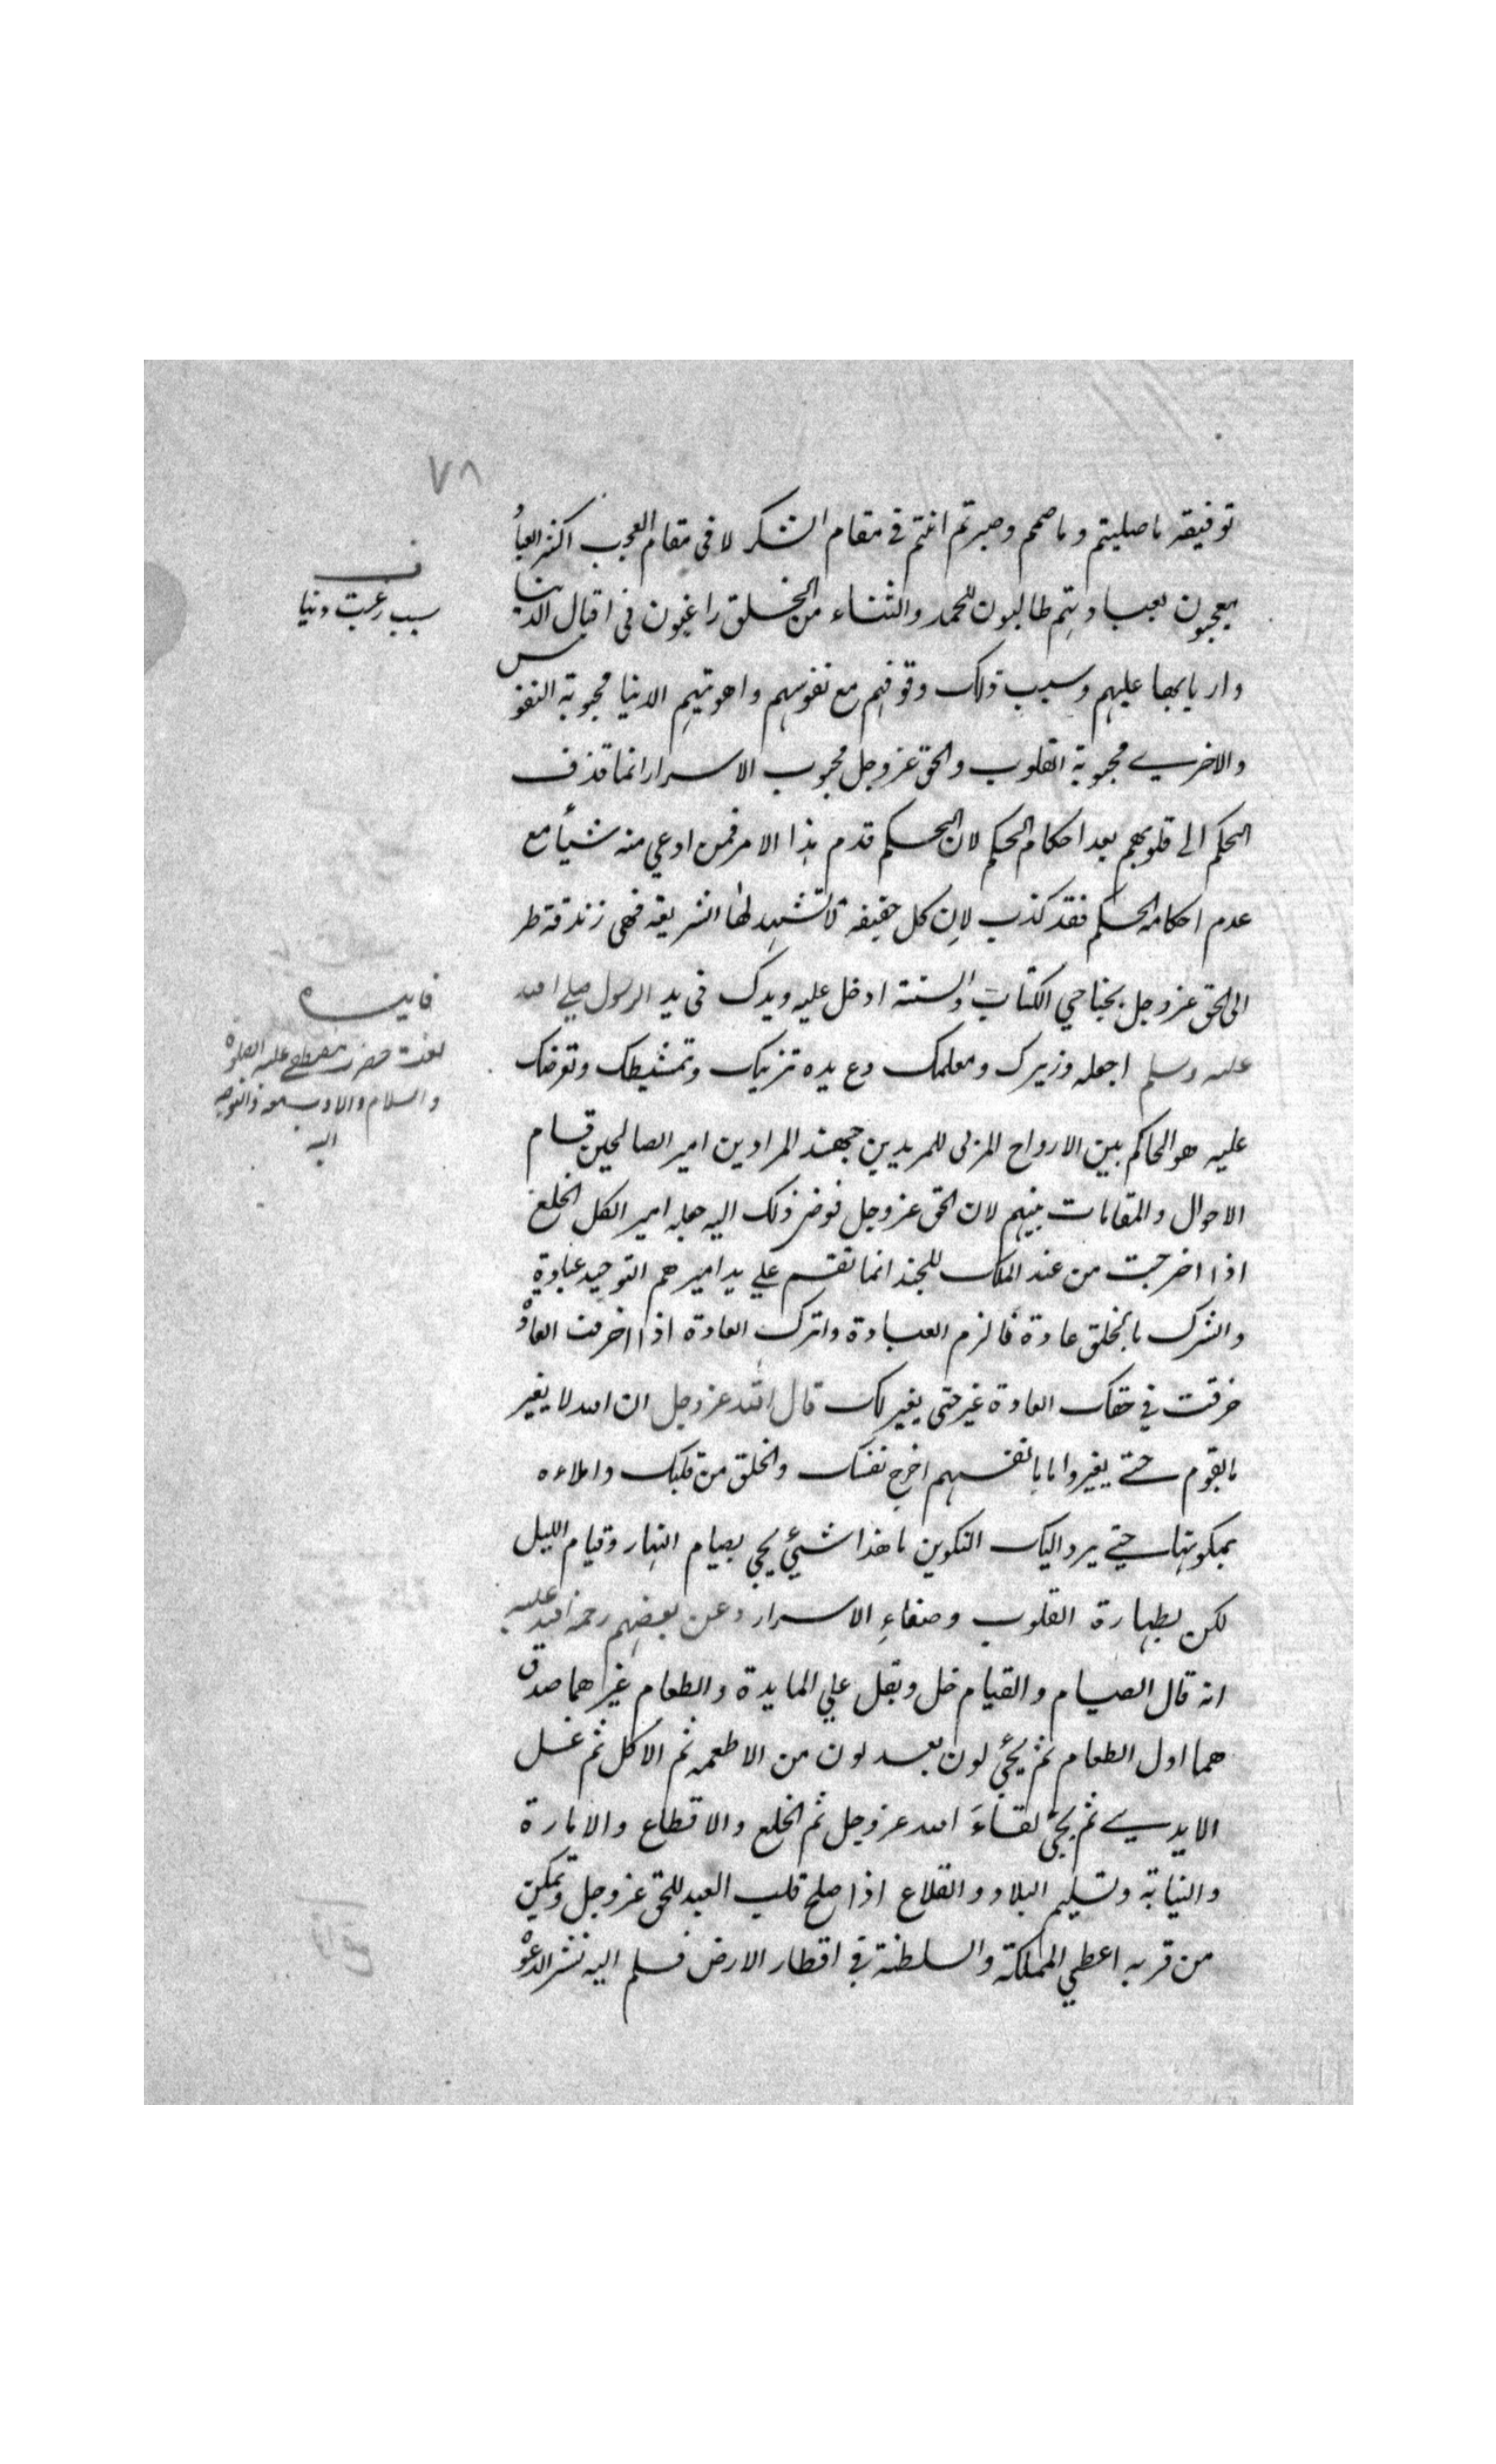 ٧٨
توفيقه ما صليتم وما صمتم وصبرتم انتم في مقام الشكر لا في مقام العجب اكثر العباد
يعجبون بعباداتهم طالبون للحمد والثناء من الخلق راغبون في اقبال الدنيا
واربابها عليهم وسبب ذلك وقوفهم مع نفوسهم واهويتهم الدنيا محبوبة النفوس
والاخرى محبوبة القلوب والحق عز وجل محبوب الاسرار انما قذف
الحكم الى قلوبهم بعد احكام الحكم لان الحكم قدم هذا الامر فمن ادعي منه شيأ مع
عدم احكامه الحكم فقد كذب لان كل حقيقه لا تشهد لها الشريعه فهى زندقة طر
الى الحق عز وجل بجناحي الكتاب والسنة ادخل عليه ويدك في يد الرسول صلي الله
عليه وسلم اجعله وزيرك ومعلمك دع يده تزينك وتمشطك وتعرضك
عليه هو الحاكم بين الارواح المربى للمريدين جهبذ المرادين امير الصالحين قسام
الاحوال والمقامات بينهم لان الحق عز وجل فوض ذلك اليه جعله امير الكل الخلع
اذا اخرجت من عند الملك للجند انما تقسم علي يد اميرهم التوحيد عبادة
والشرك بالخلق عادة فالزم العبادة واترك العادة اذا اخرقت العادة
خرقت في حقك العادة غير حتى يغير لك قال الله عز وجل ان الله لا يغير
ما بقوم حتى يغيروا ما بانفسهم اخرج نفسك والخلق من قلبك واملاءه
بمكونها حتى يرد اليك التكوين ما هذا شيئ يجي بصيام النهار وقيام الليل
لكن بطهارة القلوب وصفاء الاسرار وعن بعضهم رحمة الله عليه
انه قال الصيام والقيام خل وبقل علي المايدة والطعام غيرهما صدق
هما اول الطعام ثم يجئ لون بعد لون من الاطعمه ثم الاكل ثم غسل
الايدي ثم يجئ لقاء الله عز وجل ثم الخلع والاقطاع والامارة
والنيابة وتسليم البلاد والقلاع اذا صلح قلب العبد للحق عز وجل وتمكن
من قربه اعطي المملكة والسلطنة في اقطار الارض فسلم اليه نشر الدعوة
ف
سبب رغبت دنيا
فايده
حضرت مصطفى عليه الصلوة
والسلام
اليه